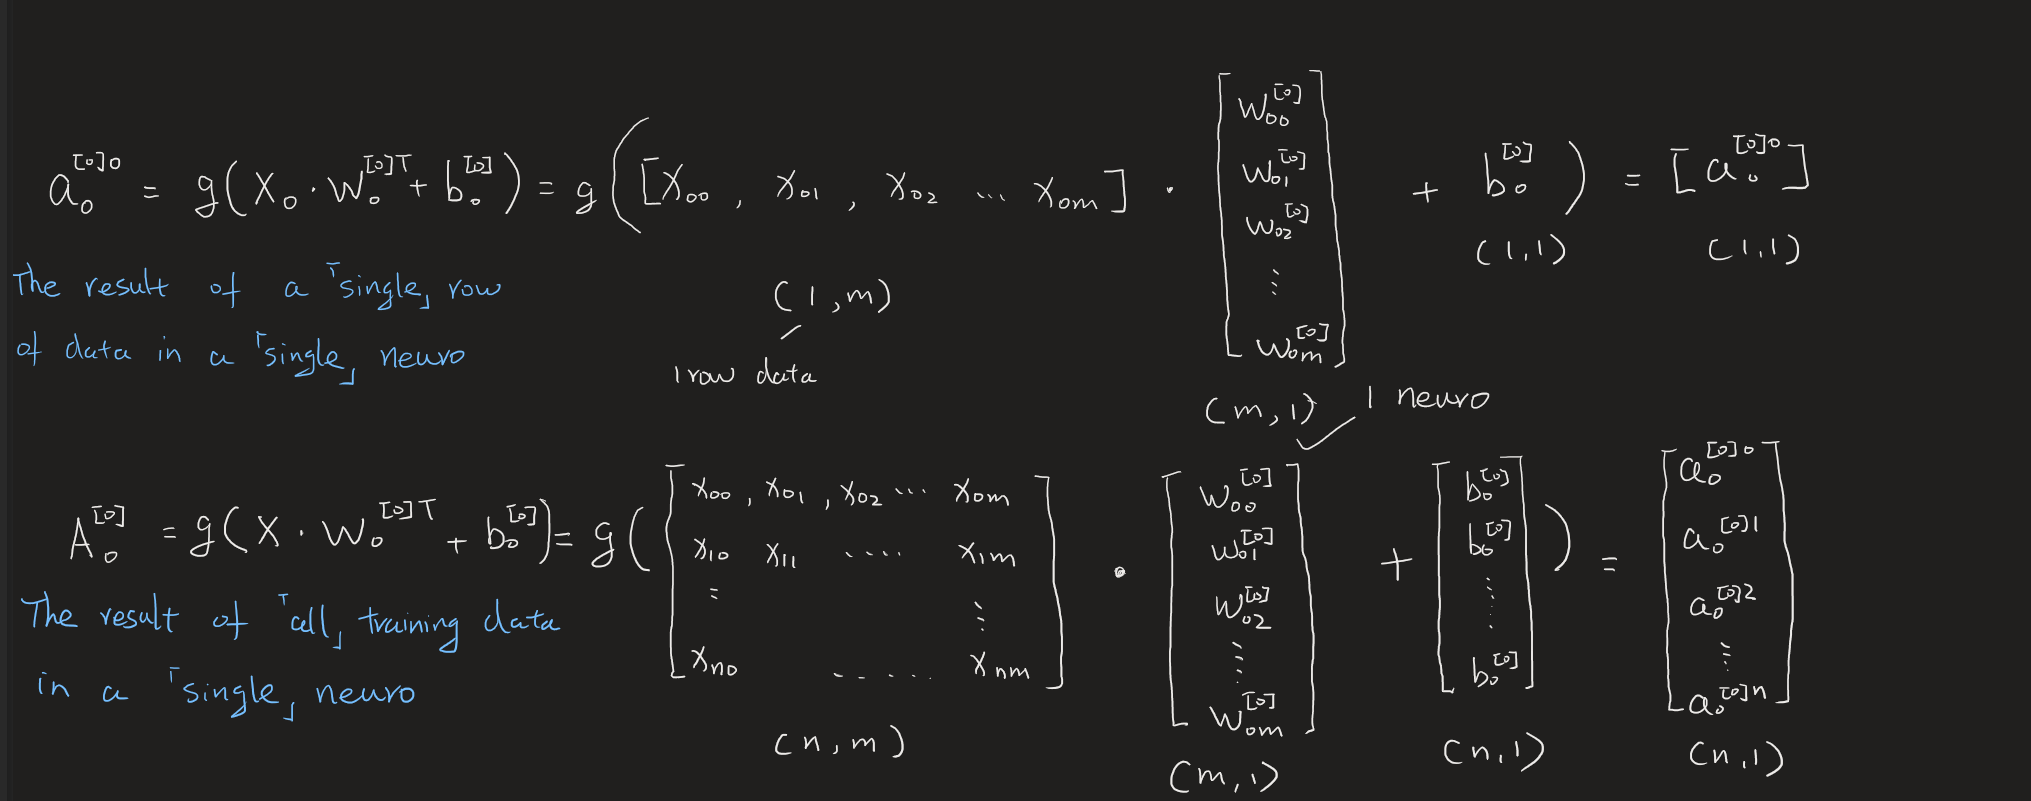 a₀^{[0]0} = g(X₀ · W₀^{[0]T} + b₀^{[0]}) = g([X₀₀ , X₀₁ , X₀₂ ... X₀m] · [W₀₀^{[0]} W₀₁^{[0]} W₀₂^{[0]} ⋮ W₀m^{[0]}] + b₀^{[0]}) = [a₀^{[0]0}]
(1,m) (m,1) (1,1) (1,1)
The result of a 「single」 row
of data in a 「single」 neuro
1 row data
1 neuro
A₀^{[0]} = g(X · W₀^{[0]T} + b₀^{[0]}) = g([X₀₀ , X₀₁ , X₀₂ ... X₀m
X₁₀ X₁₁ .... X₁m
⋮ ⋮
Xn₀ ...... Xnm] · [W₀₀^{[0]} W₀₁^{[0]} W₀₂^{[0]} ⋮ W₀m^{[0]}] + [b₀^{[0]} b₀^{[0]} ⋮ b₀^{[0]}]) = [a₀^{[0]0} a₀^{[0]1} a₀^{[0]2} ⋮ a₀^{[0]n}]
The result of 「all」 training data
in a 「single」 neuro
(n,m) (m,1) (n,1) (n,1)